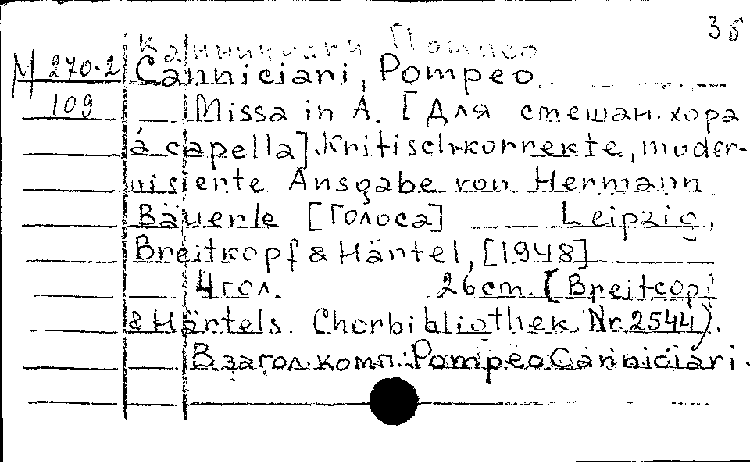 36
Канничиари Помпео
М 270-2 Canniciari, Pompeo
109 Missa in A. [Для смешан. хора
á capella]. Kritisch-korrekte, moder-
nisierte Ausgabe von Hermann
Bäuerle [Голоса] Leipzig,
Breitkopf & Härtel, [1948]
4 гол. 26 cm. (Breitcopf
& Härtels Chorbibliothek Nr. 2544).
В загол. комп.: Pompeo Canniciari.